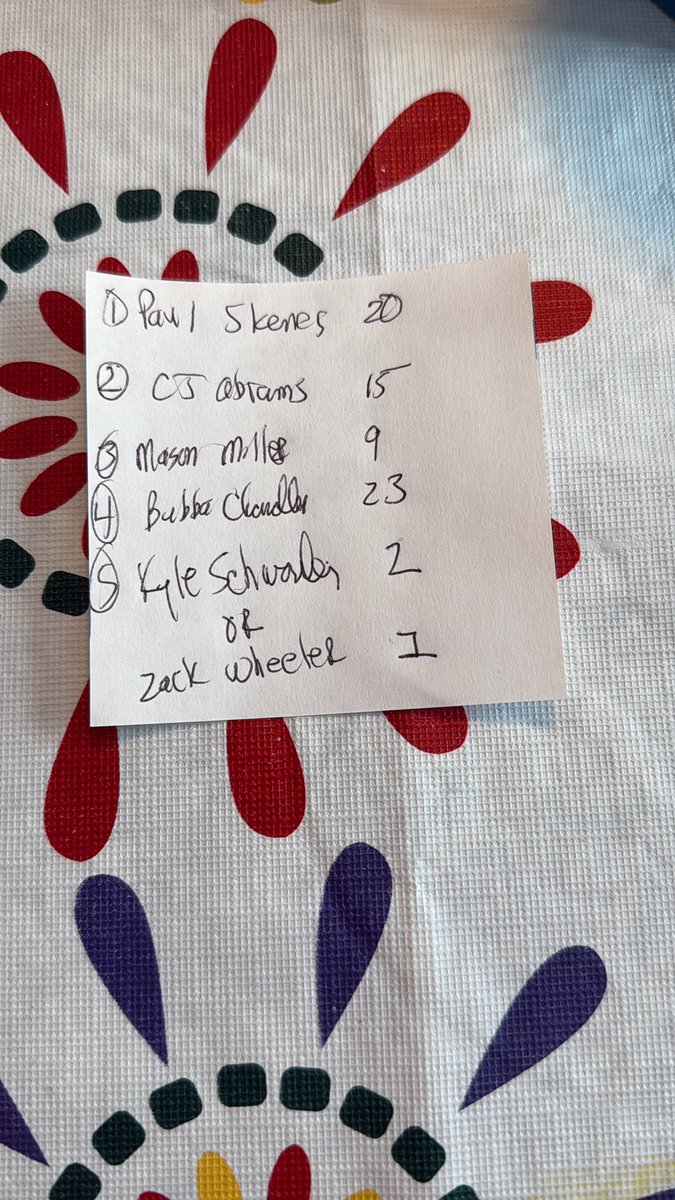 ① Paul Skenes 20
② CJ Abrams 15
③ Mason Miller 9
④ Bubba Chandler 23
⑤ Kyle Schwarber 2
OR
Zack Wheeler 1